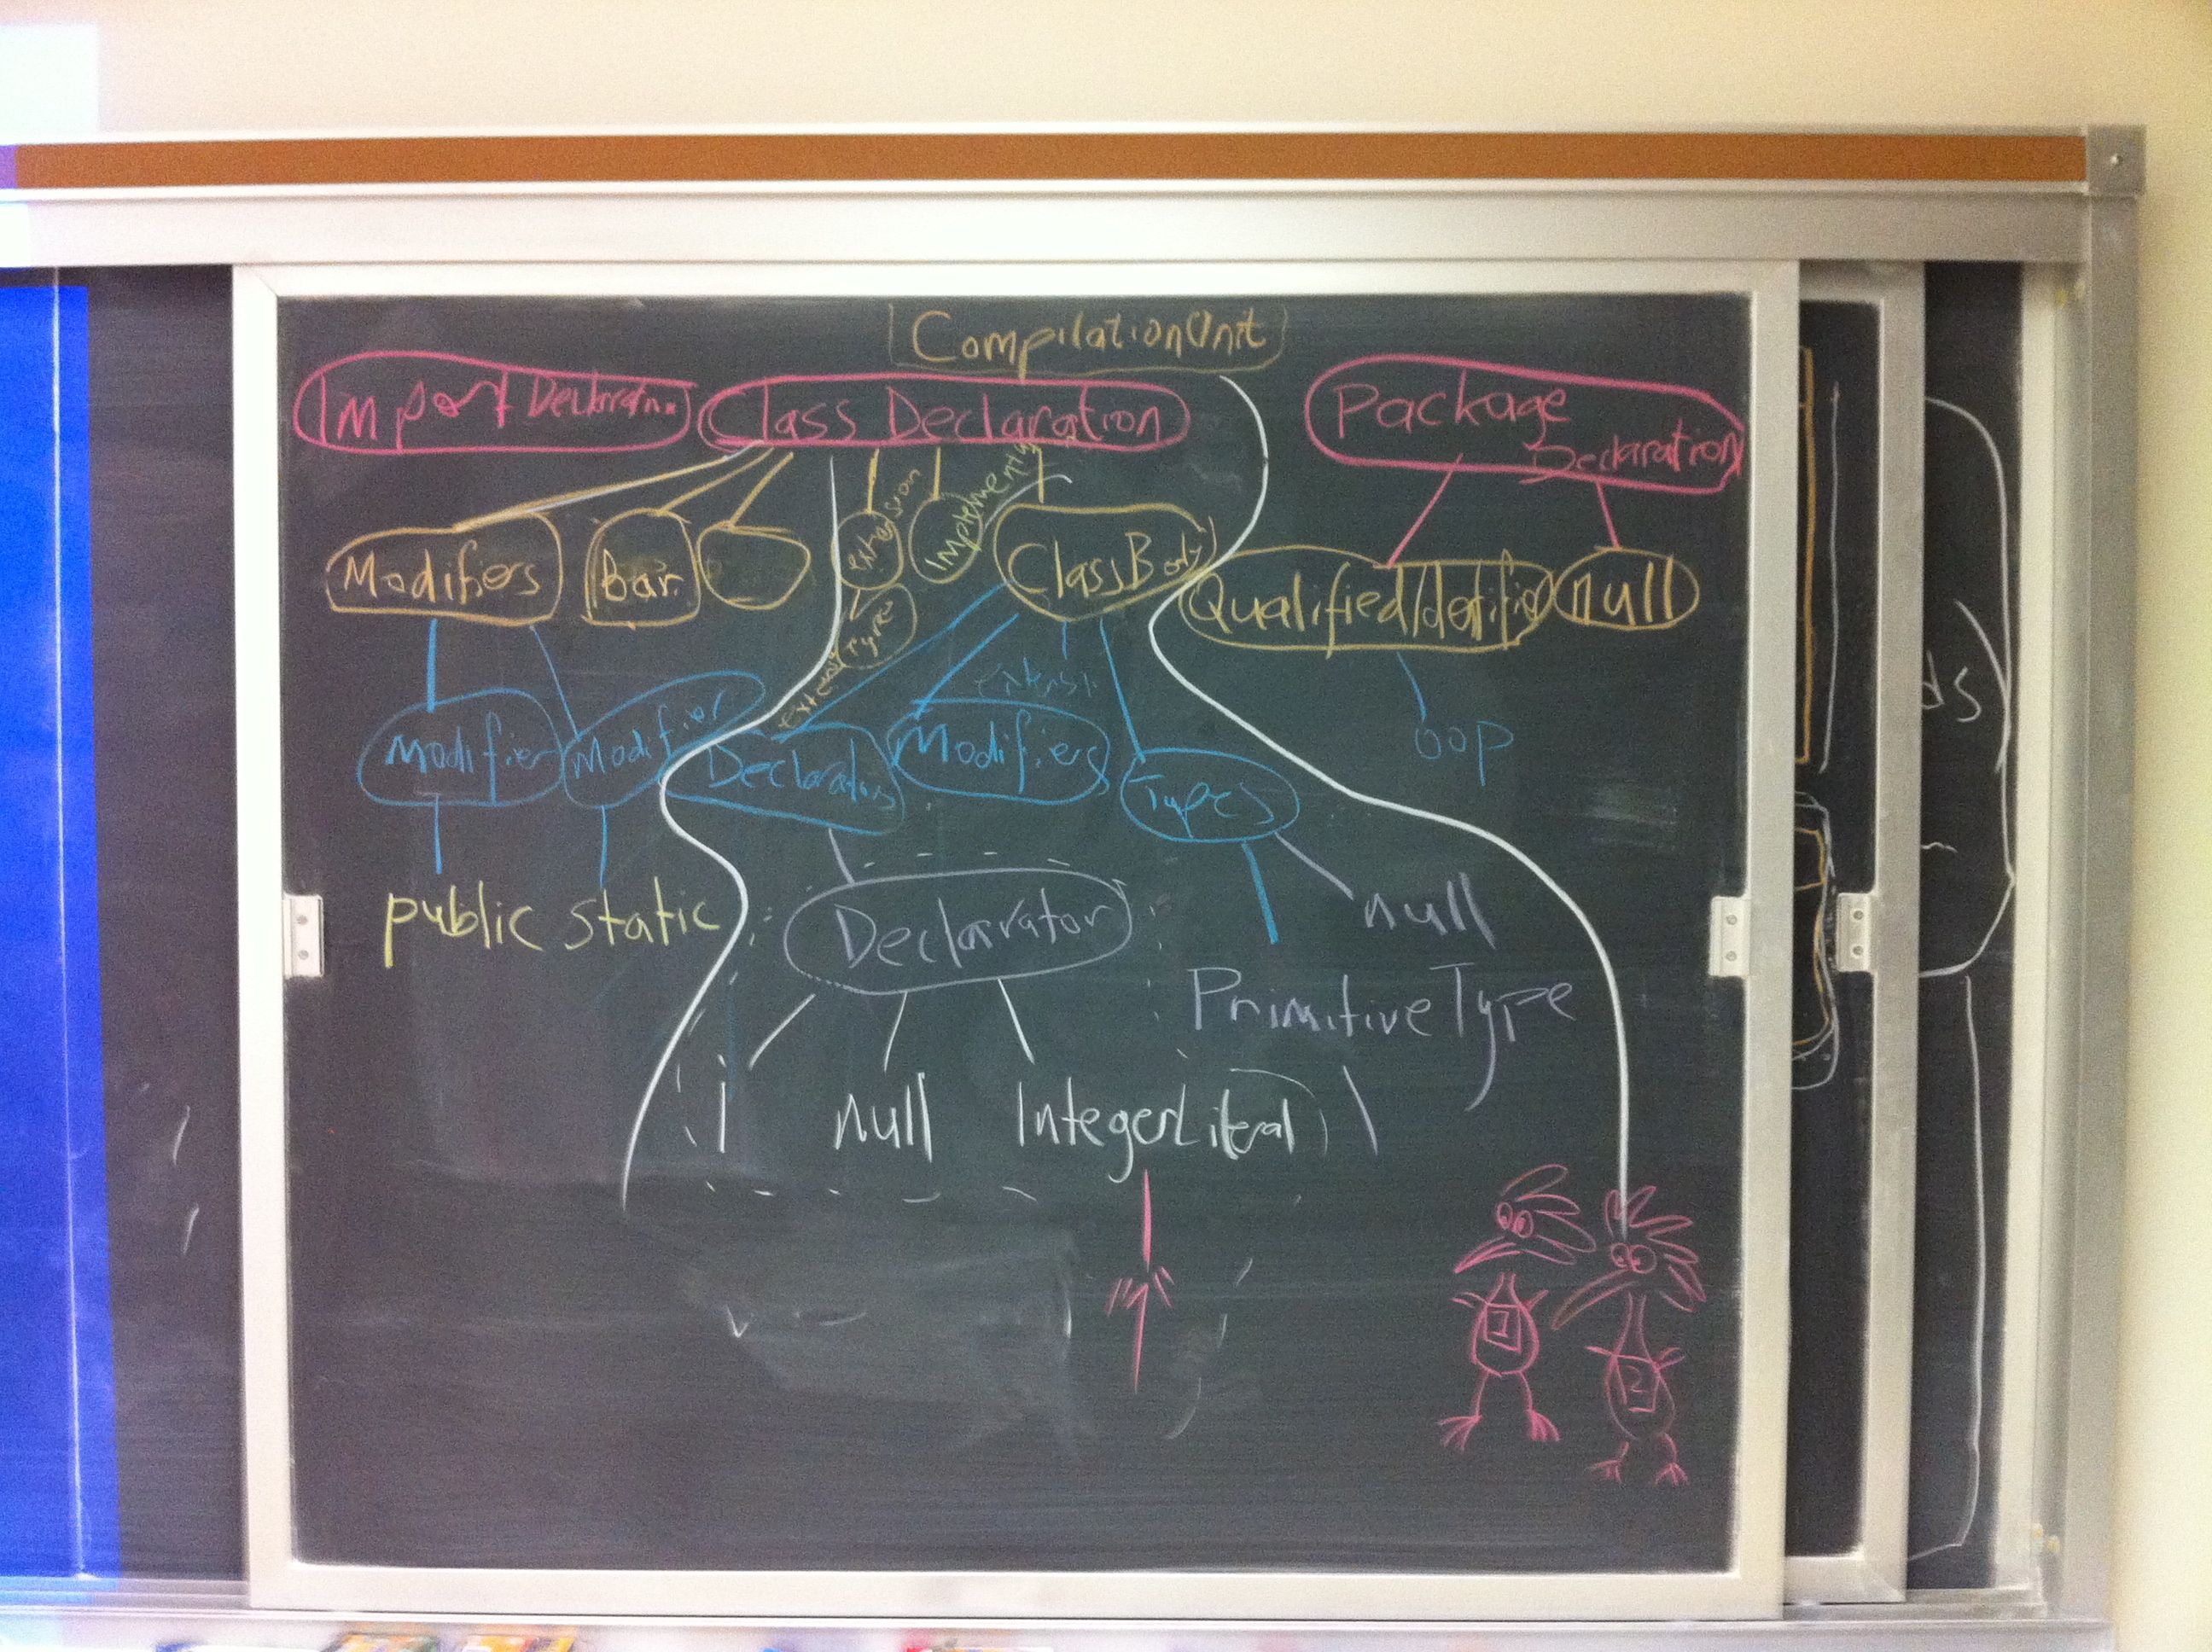 CompilationUnit
Import Declaration
Class Declaration
Package
Declaration
Extension
Implements
Modifiers
Bar
ClassBody
QualifiedIdentifier
null
Types
extends
Modifier
Modifier
Declarators
Modifiers
Types
oop
public static
Declarator
null
PrimitiveType
i
null
IntegerLiteral
1
1
2
ds